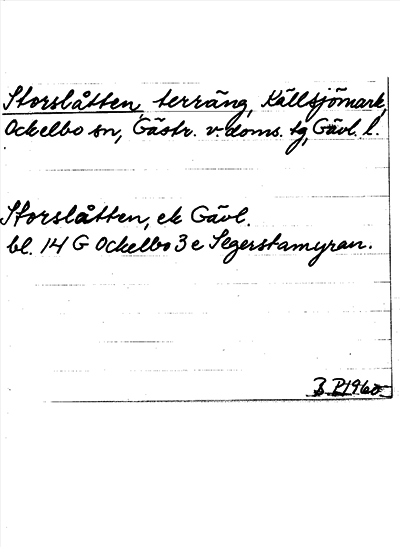 Storslåtten, terräng, Källsjömark,
Ockelbo sn, Gästr. v. doms. tg, Gävl. l.
Storslåtten, ek Gävl.
bl. 14 G Ockelbo 3 e Segerstamyran.
B P 1960